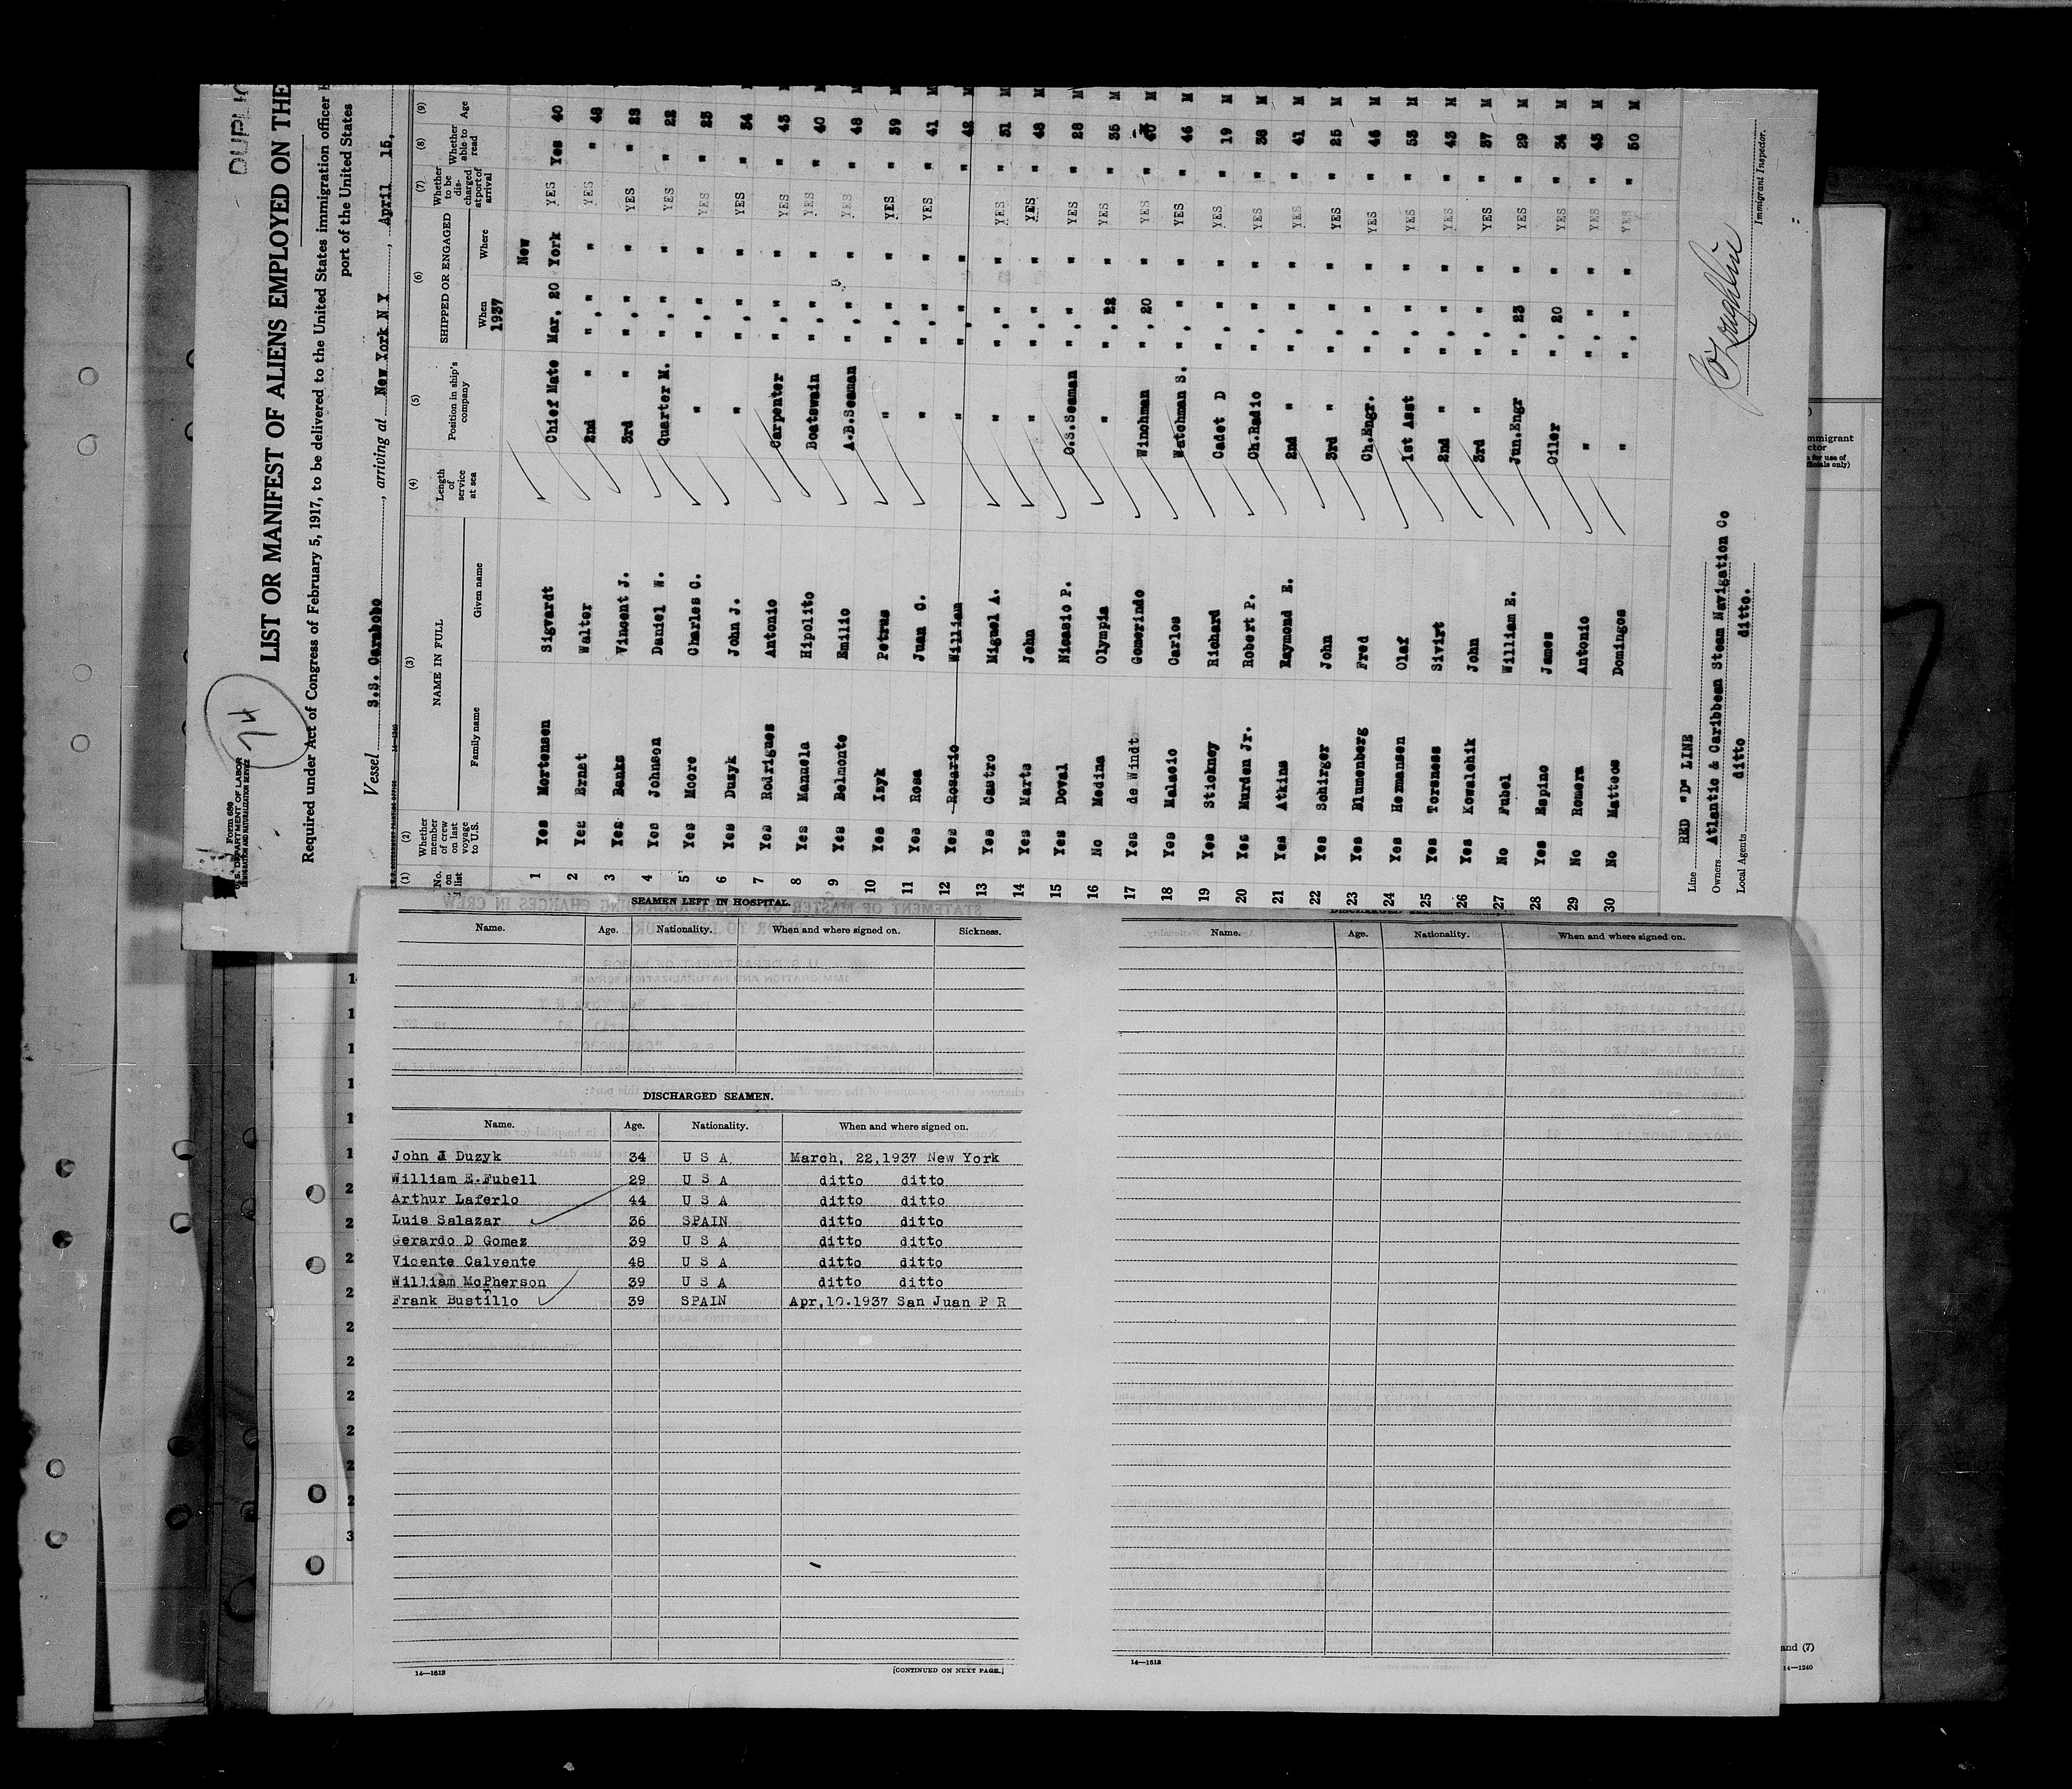 DUPLIC
Form 689
U. S. DEPARTMENT OF LABOR
IMMIGRATION AND NATURALIZATION SERVICE
74
LIST OR MANIFEST OF ALIENS EMPLOYED ON THE
Required under Act of Congress of February 5, 1917, to be delivered to the United States immigration officer
port of the United States
Vessel S.S. Carabobo, arriving at New York N Y, April 15,
(1) (2) (3) (4) (5) (6) (7) (8) (9)
No. on list Whether member of crew on last voyage to U.S. NAME IN FULL Family name Given name Length of service at sea Position in ship's company SHIPPED OR ENGAGED When Where Whether to be discharged at port of arrival Whether able to read Age
1937 New
1 Yes Mortensen Sigvardt Chief Mate Mar, 20 York YES Yes 40
2 Yes Ernst Walter 2nd " " , " " YES " 48
3 Yes Banks Vincent J. 3rd " " , " " YES " 28
4 Yes Johnson Daniel W. Quarter M. " , " " YES " 22
5 Yes Moore Charles C. " " , " " YES " 23
6 Yes Duzyk John J. " " , " " YES " 34
7 Yes Rodrigues Antonio Carpenter " , " " YES " 43
8 Yes Manuela Hipolito Boatswain " , " " YES " 40
9 Yes Belmonte Emilio A.B.Seaman " , " " YES " 48
10 Yes Izyk Petrus " " , " " YES " 39
11 Yes Rosa Juan C. " " , " " YES " 41
12 Yes Rosario William " " , " " " 42
13 Yes Castro Miguel A. " " , " " YES " 31 M
14 Yes Marts John " " , " " YES " 48 M
15 Yes Doval Nicasio P. O.S.Seaman " , " " YES " 28 M
16 No Medina Olympia " " , 22 " YES " 35 M
17 Yes de Windt Gomerindo Winchman " , 20 " YES " M
18 Yes Malacio Carlos Watchman S. " , " " YES " 46 M
19 Yes Stickney Richard Cadet D " , " " YES " 19 M
20 Yes Murden Jr. Robert P. Ch.Radio " , " " YES " 38 M
21 Yes Atkins Raymond E. 2nd " " , " " YES " 41 M
22 Yes Schirger John 3rd " " , " " YES " 25 M
23 Yes Blumenberg Fred Ch.Engr. " , " " YES " 46 M
24 Yes Hermansen Olaf 1st Asst " , " " YES " 53 M
25 Yes Torsness Sivirt 2nd " " , " " YES " 43 M
26 Yes Kowalchik John 3rd " " , " " YES " 37 M
27 No Fubel William E. Jun.Engr " , 23 " YES " 29 M
28 Yes Espino James Oiler " , 20 " YES " 34 M
29 No Romera Antonio " " , " " YES " 45 M
30 No Matteos Domingos " " , " " YES " 50 M
Line RED "D" LINE
Owners Atlantic & Caribbean Steam Navigation Co
Local Agents ditto ditto.
Immigrant Inspector.
SEAMEN LEFT IN HOSPITAL.
Name. Age. Nationality. When and where signed on. Sickness.
DISCHARGED SEAMEN.
Name. Age. Nationality. When and where signed on.
John J Duzyk 34 U S A March, 22,1937 New York
William E.Fubell 29 U S A ditto ditto
Arthur Laferlo 44 U S A ditto ditto
Luis Salazar 36 SPAIN ditto ditto
Gerardo D Gomez 39 U S A ditto ditto
Vicente Calvente 48 U S A ditto ditto
William McPherson 39 U S A ditto ditto
Frank Bustillo 39 SPAIN Apr,10.1937 San Juan P R
14—1613
[CONTINUED ON NEXT PAGE.]
Name. Age. Nationality. When and where signed on.
14—1613
and (7)
14—1240